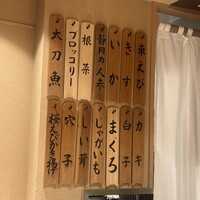 車えび
きす
いか
静岡の人参
根菜
ブロッコリー
太刀魚
カキ
白子
まぐろ
じゃがいも
しい茸
穴子
桜えびかき揚げ